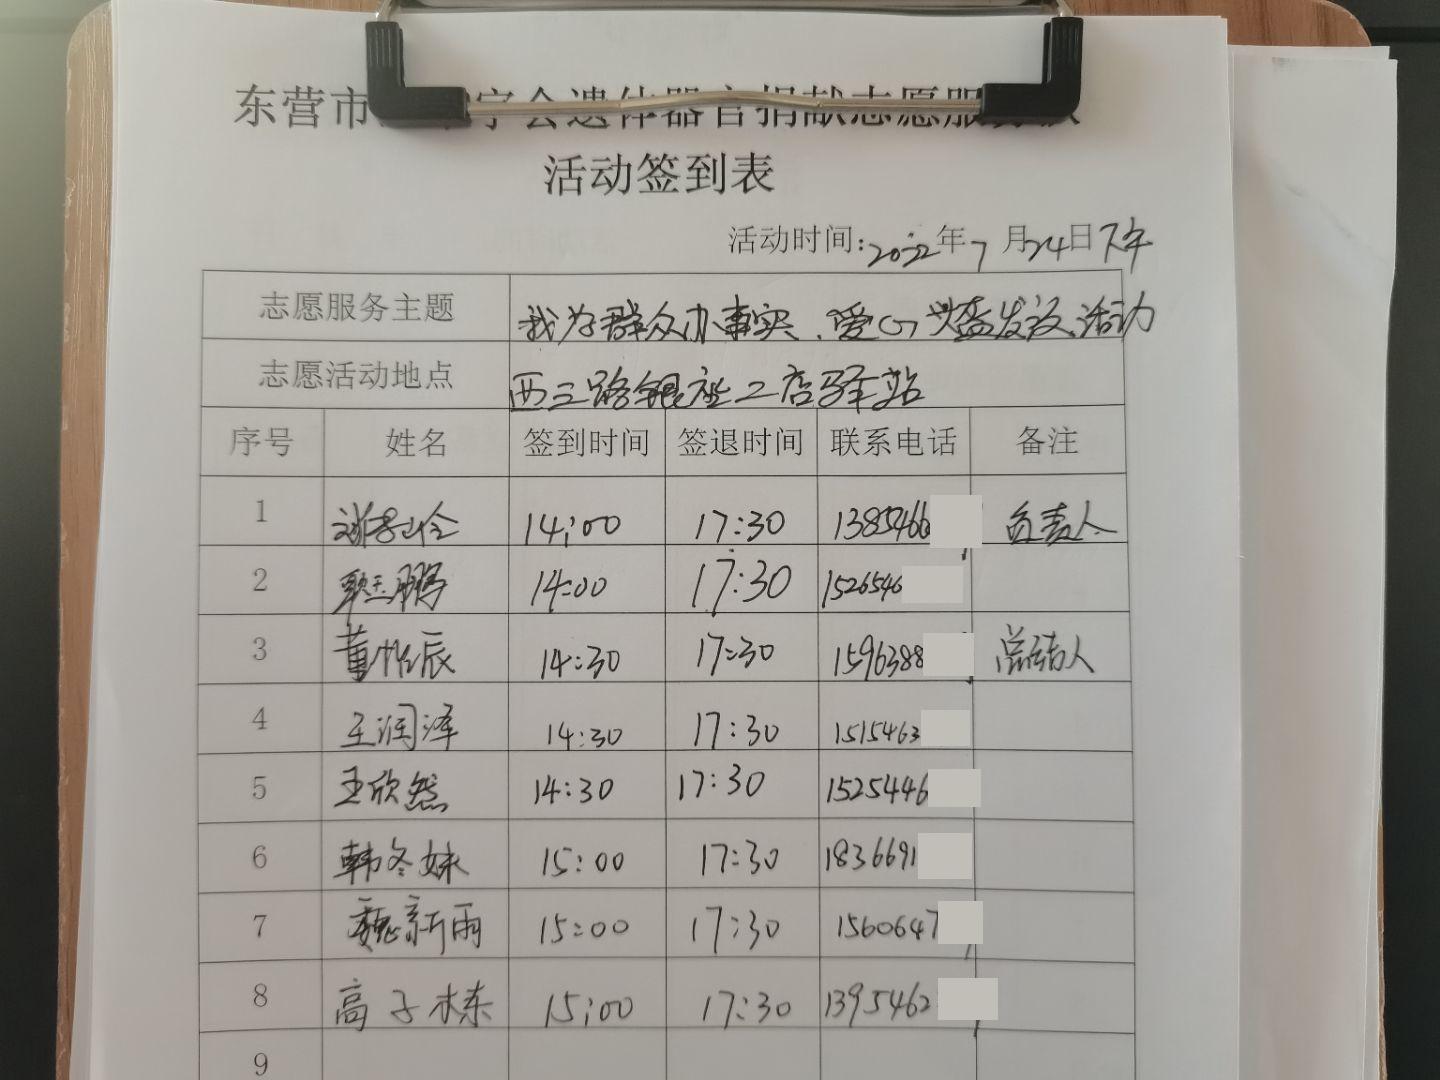 东营市 字会遗体器官捐献志愿服务队
活动签到表
活动时间:2022年7月24日下午
志愿服务主题 我为群众办事实、爱心 发放活动
志愿活动地点 西三路银座二店驿站
序号 姓名 签到时间 签退时间 联系电话 备注
1 14:00 17:30 1385466 负责人
2 鹏 14:00 17:30 1526546
3 董怡辰 14:30 17:30 1596388 总结人
4 王润泽 14:30 17:30 1515463
5 王欣然 14:30 17:30 1525446
6 韩冬妹 15:00 17:30 1836691
7 魏新雨 15:00 17:30 1560647
8 高子栋 15:00 17:30 1395462
9